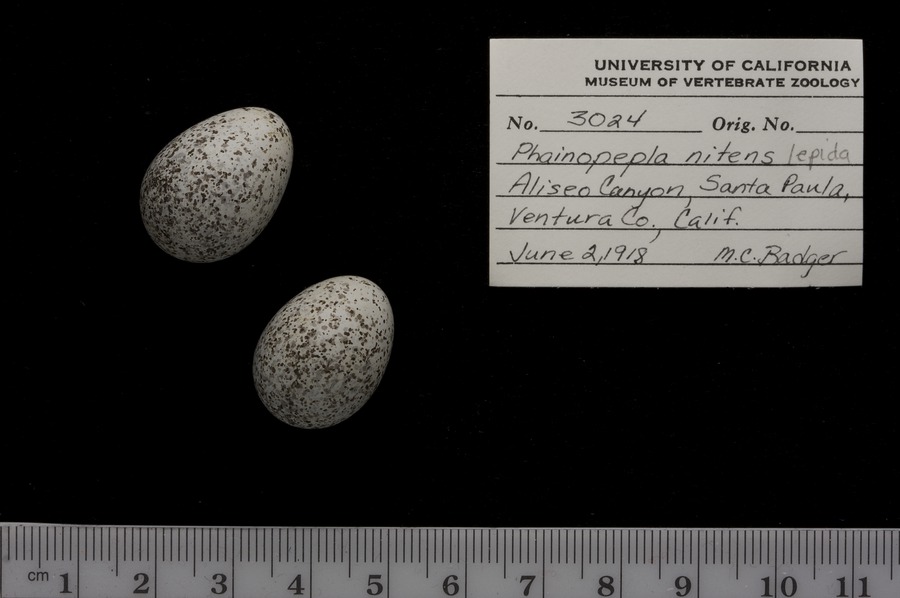 UNIVERSITY OF CALIFORNIA
MUSEUM OF VERTEBRATE ZOOLOGY
No. 3024 Orig. No.
Phainopepla nitens lepida
Aliseo Canyon, Santa Paula,
Ventura Co., Calif.
June 2, 1918 M.C. Badger
cm 1 2 3 4 5 6 7 8 9 10 11